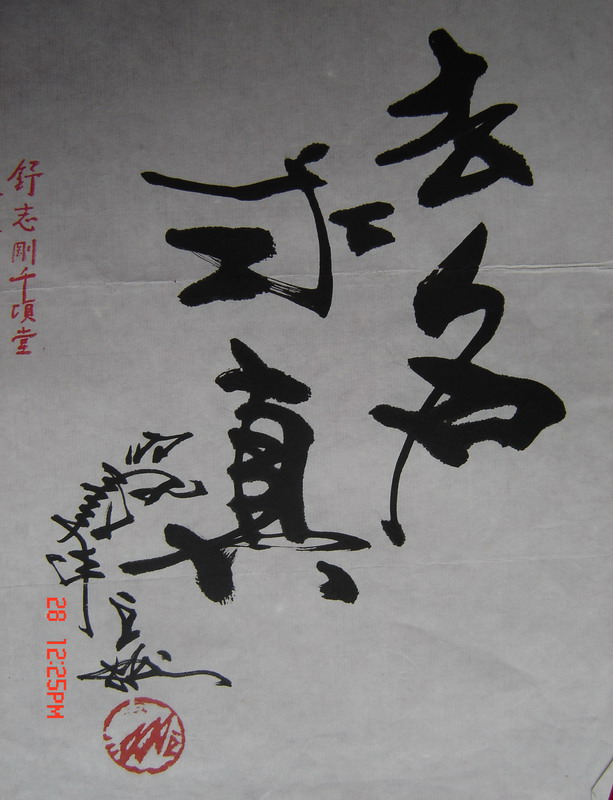 去名
求真
舒志剛千頃堂
28 12:25PM